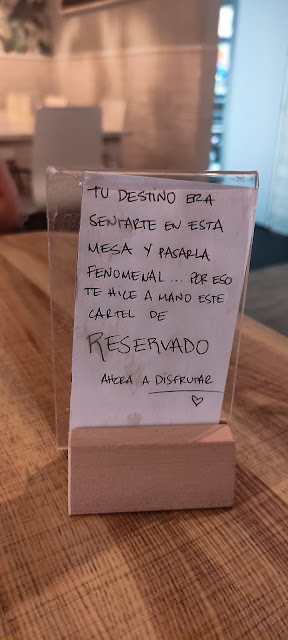 TU DESTINO ERA
SENTARTE EN ESTA
MESA Y PASARLA
FENOMENAL... POR ESO
TE HICE A MANO ESTE
CARTEL DE
RESERVADO
AHORA A DISFRUTAR